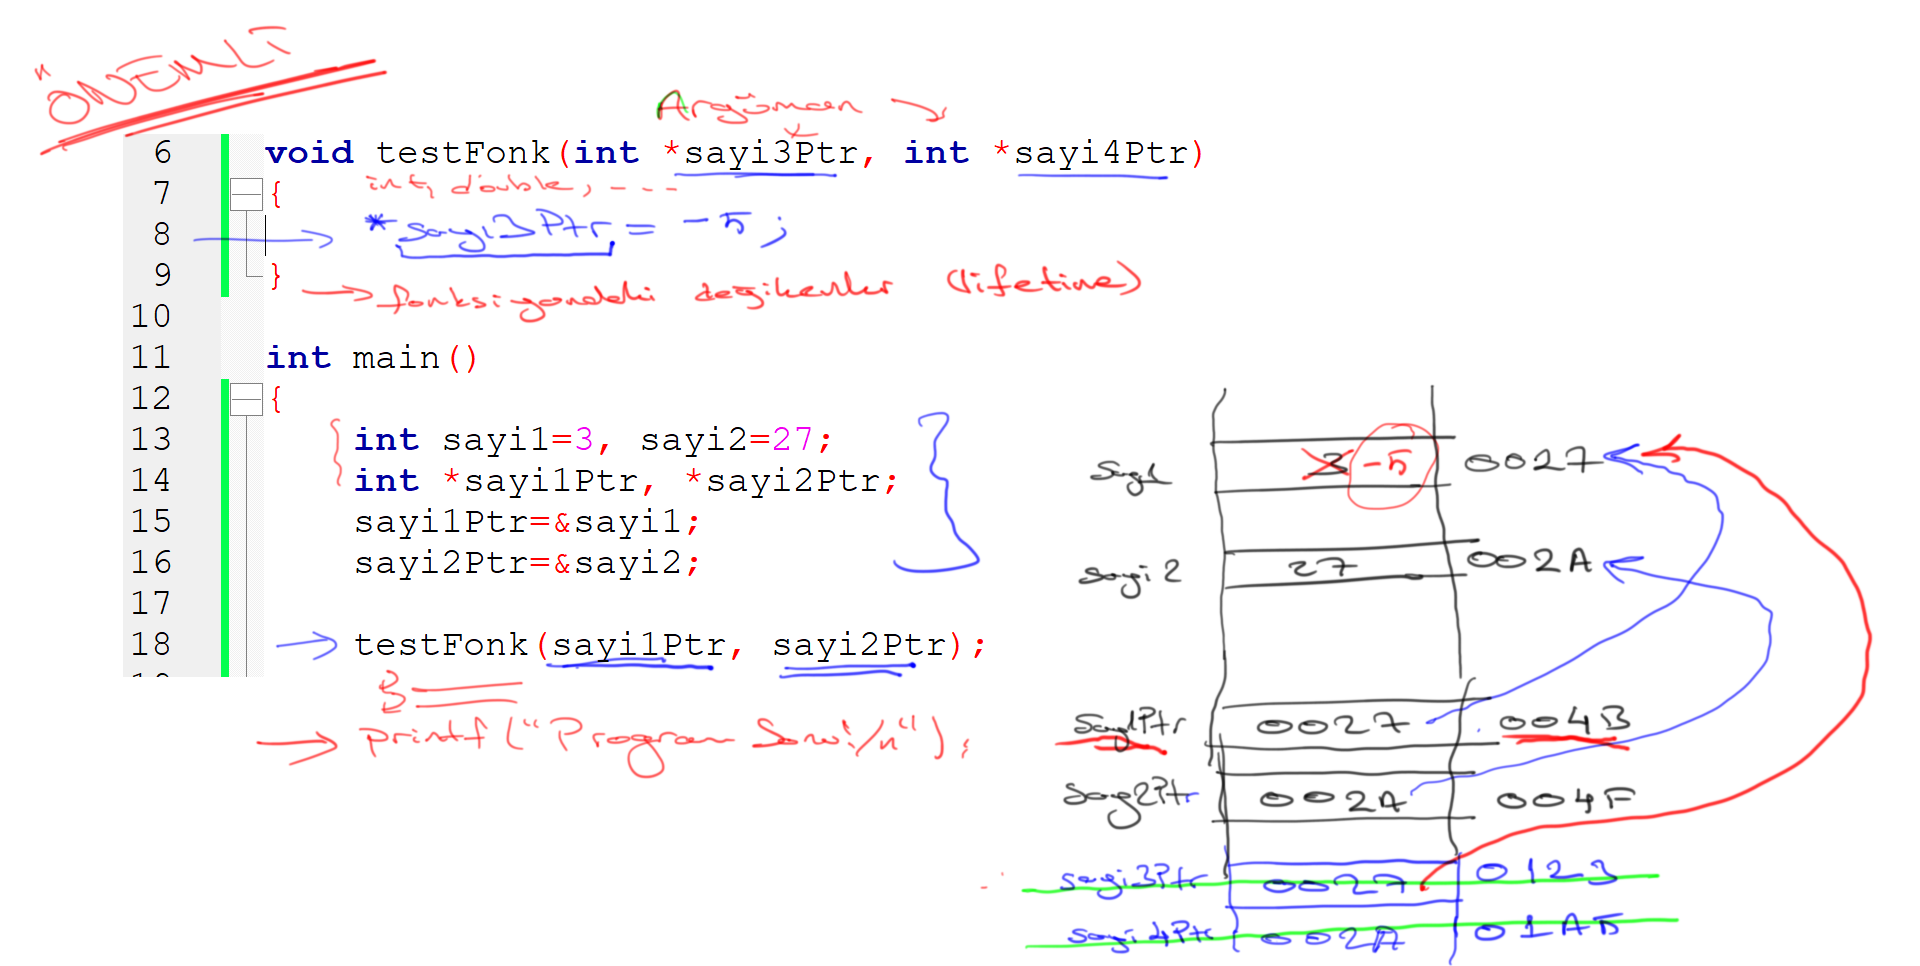 "ÖNEMLİ
Argüman
6 void testFonk(int *sayi3Ptr, int *sayi4Ptr)
int, double, ----
7 {
8 *sayi3Ptr = -5;
9 }
fonksiyondaki değikenler (lifetime)
10
11 int main()
12 {
13 int sayi1=3, sayi2=27;
14 int *sayi1Ptr, *sayi2Ptr;
15 sayi1Ptr=&sayi1;
16 sayi2Ptr=&sayi2;
17
18 testFonk(sayi1Ptr, sayi2Ptr);
printf("Program Sonu!/n");
Sayi1 3 -5 0027
Sayi2 27 002A
Sayi1Ptr 0027 004B
Sayi2Ptr 002A 004F
sayi3Ptr 0027 0123
sayi4Ptr 002A 01A5